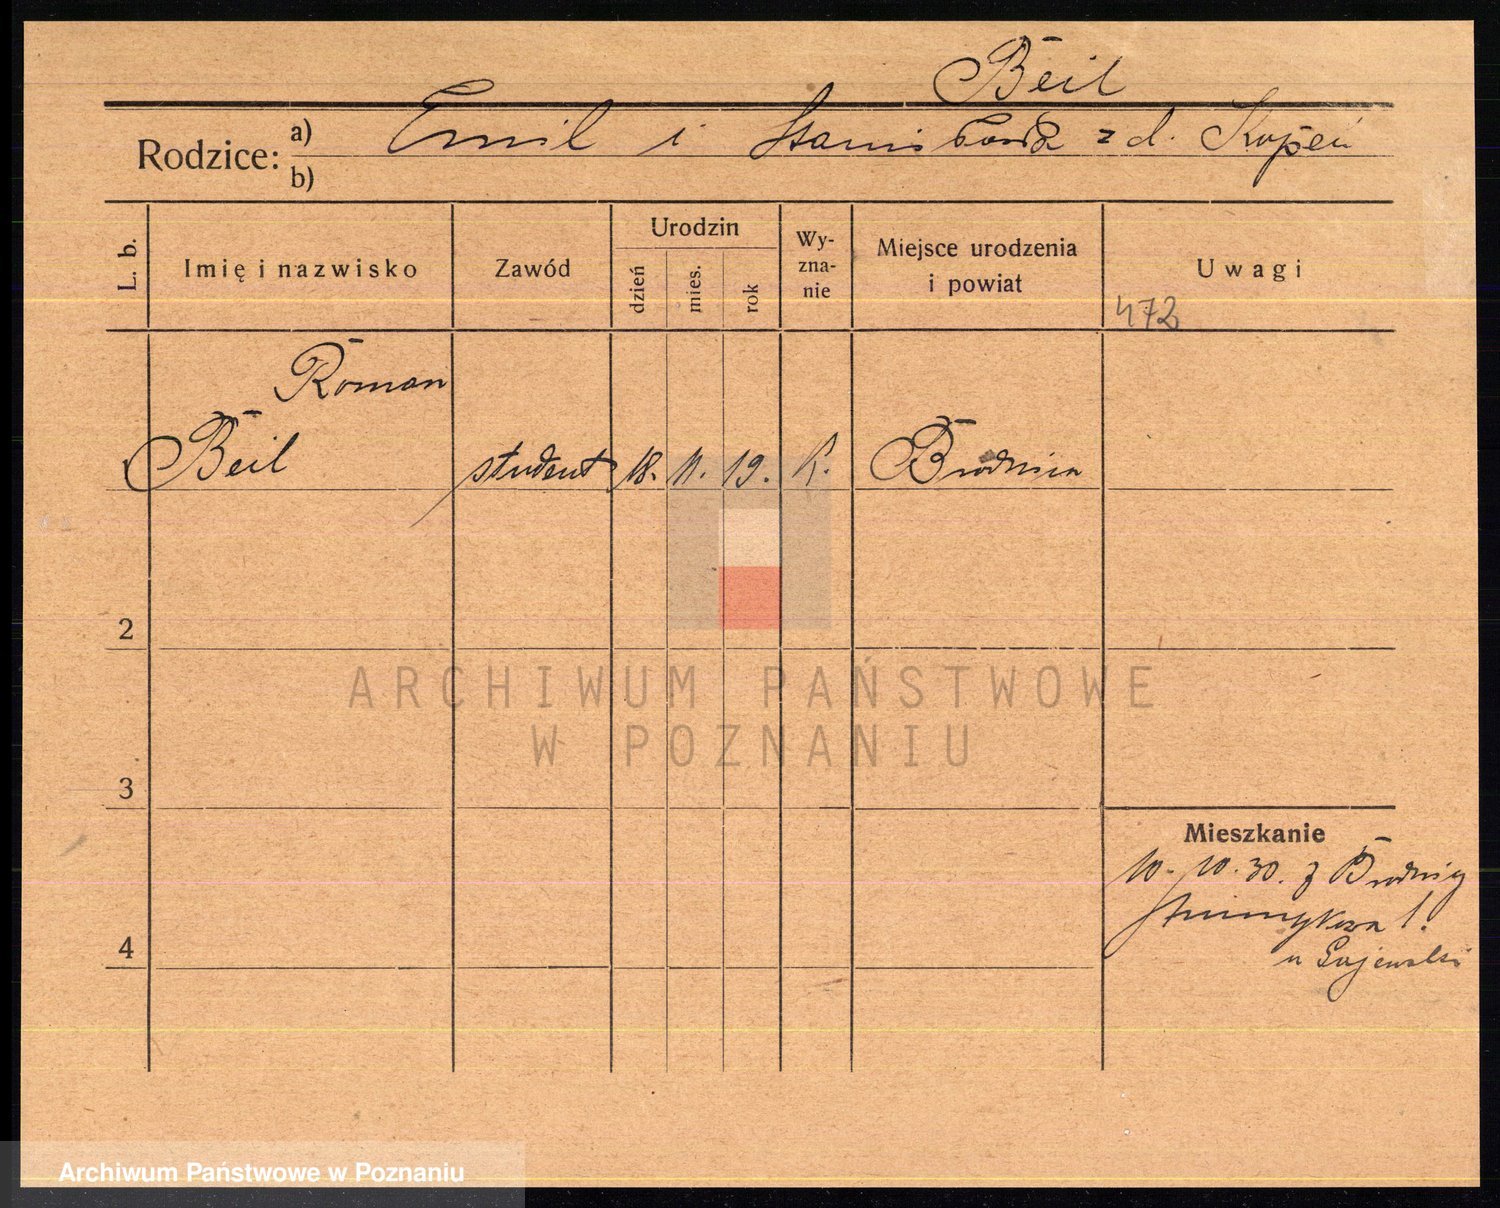 Beil
Rodzice: a) Emil i Stanisława z d. Kopeń
b)
L. b.
Imię i nazwisko
Zawód
Urodzin
dzień
mies.
rok
Wy-
zna-
nie
Miejsce urodzenia
i powiat
Uwagi
472
Roman
Beil student 18. 11. 19. K. Brodnica
2
3
4
Mieszkanie
10. 10. 30. z Brodnicy
1.
u Gajewski
ARCHIWUM PAŃSTWOWE
W POZNANIU
Archiwum Państwowe w Poznaniu